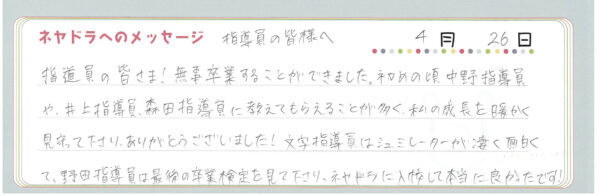 ネヤドラへのメッセージ 指導員の皆様へ 4月 26日
指道員の皆さま!無事卒業することができました。初めの頃中野指導員
や、井上指導員、森田指導員に教えてもらえることが多く、私の成長を暖かく
見守って下さり、ありがとうございました!文字指導員はシュミレーターが凄く面白く
て、野田指導員は最後の卒業検定を見て下さり、ネヤドラに入校して本当に良かったです!